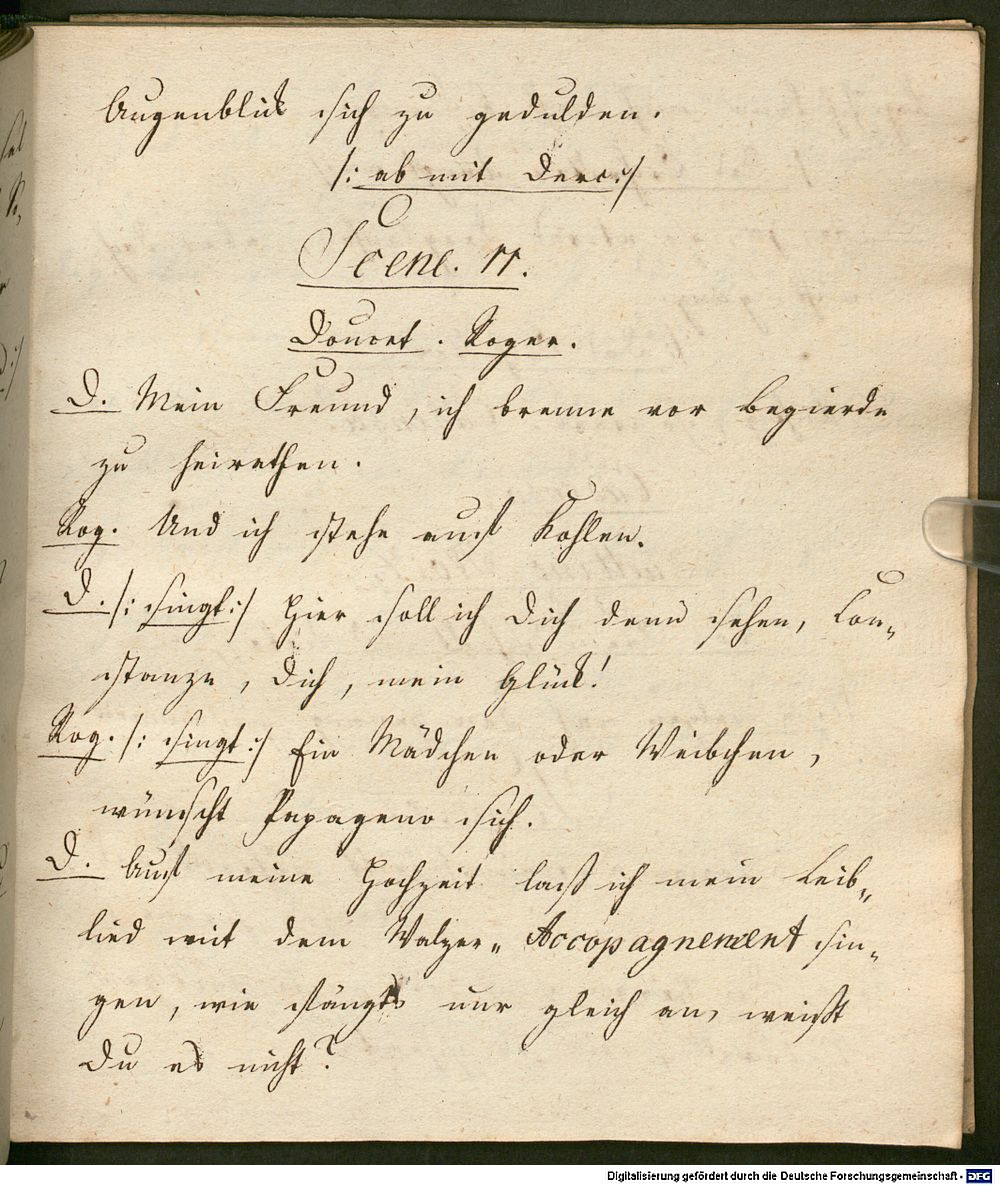 Augenblick sich zu gedulden.
/: ab mit Derc:/
Scene. 11.
Doucet. Roger.
D. Mein Freund, ich brenne vor Begierde
zu heirathen.
Rog. Und ich stehe auf Kohlen.
D. /: singt:/ Hier soll ich Dich denn sehen, Kon„
stanze, Dich, mein Glück!
Rog. /: singt:/ Ein Mädchen oder Weibchen,
wünscht Papageno sich.
D. Auf meine Hochzeit laß ich mein Leib„
lied mit dem Walzer„ Accopagnement sin„
gen, wie fängts nur gleich an, weißt
Du es nicht?
Digitalisierung gefördert durch die Deutsche Forschungsgemeinschaft - DFG